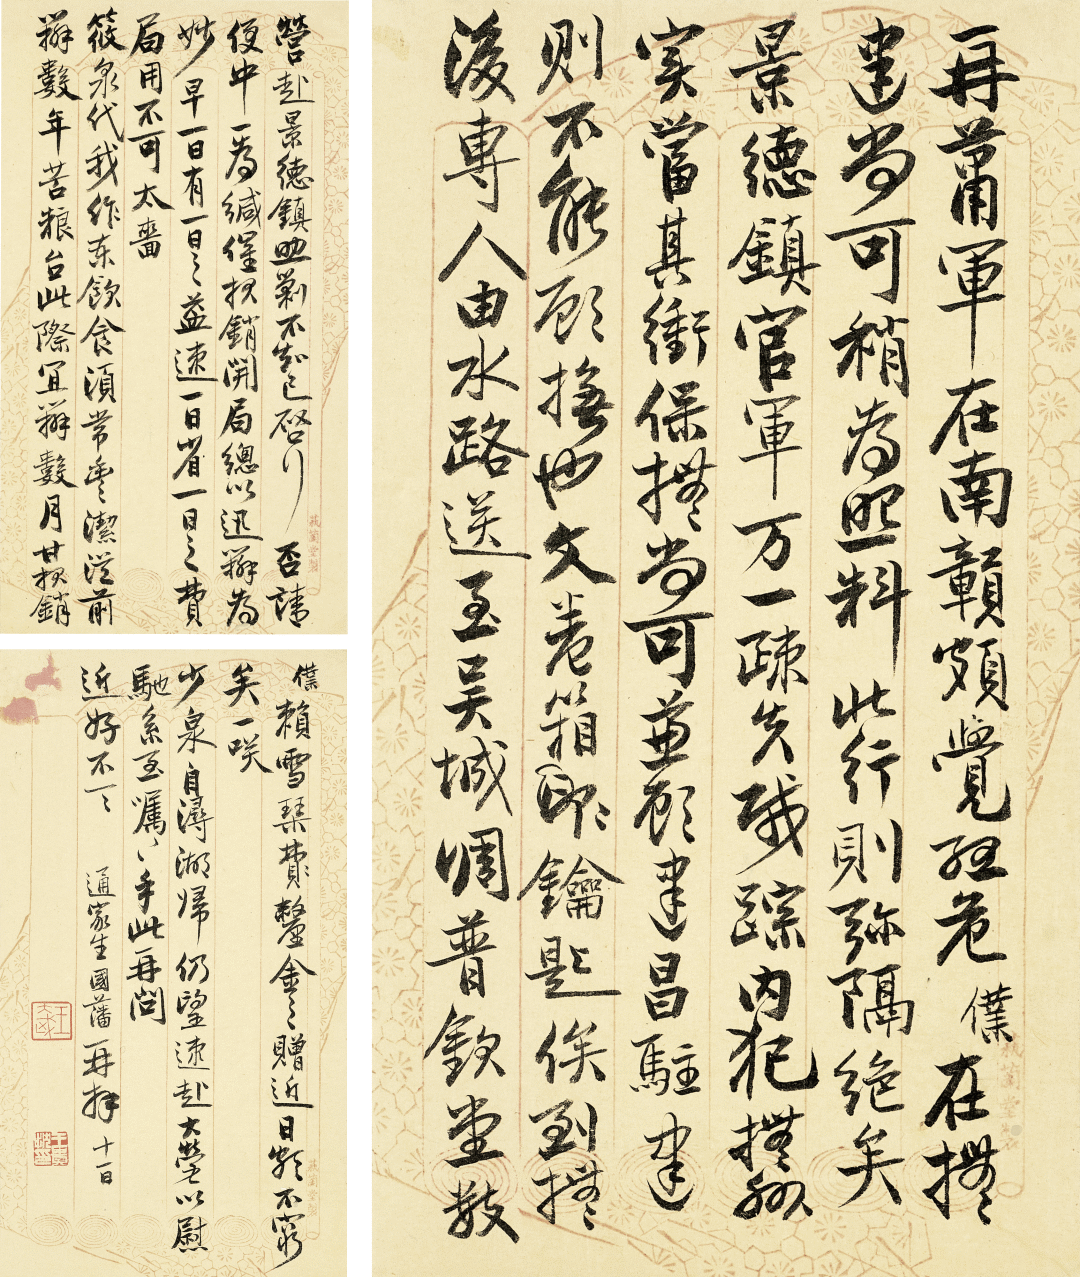 再蕭軍在南贛頗覺孤危僕在撫
建尚可稍為照料此行則弥隔絕矣
景德鎮官軍万一疎失或踪內犯撫郡
實當其衝保撫尚可兼顧建昌駐建
則不能顧撫也文卷箱即鑰匙俟到撫
後專人由水路送至吳城凋普欽堂數
營赴景德鎮助剿不知已啓行否請
便中一為緘催报銷開局總以迅辦為
妙早一日有一日之益速一日省一日之費
局用不可太嗇
筱泉代我作东飲食須常豐潔從前
辦數年苦粮台此際宜辦數月甘报銷
僕賴雪琴費釐金之贈近日頗不窮
矣一咲
少泉自潯湖歸仍望速赴大營以慰
馳系至囑〻手此再問
近好不一〻
通家生國藩再拜十一日